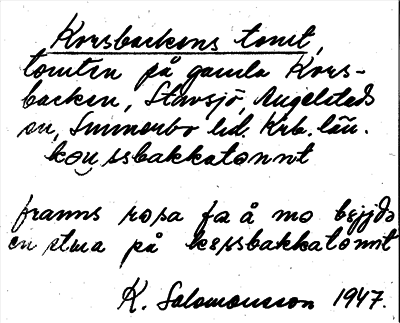 Korsbackens tomt,
tomten på gamla Kors-
backen, Stavsjö, Angelstads
sn, Sunnerbo hd. Krb. län.
kossbakkatomnt
franns rosa fa å mo bejjds
en stua på kossbakkatomnt
K. Salomonsson 1947.